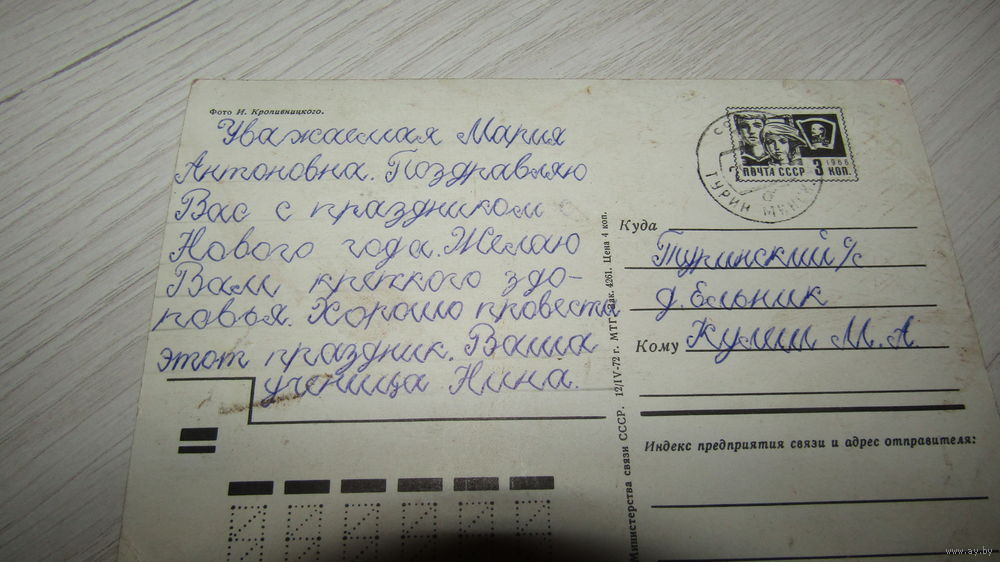 Фото И. Кропивницкого.
Уважаемая Мария
Антоновна. Поздравляю
Вас с праздником
Нового года. Желаю
Вам крепкого здо-
ровья. Хорошо провести
этот праздник. Ваша
ученица Нина.
ПОЧТА СССР 3 1966 КОП.
ТУРИН МИНСК
Куда
Туринский с/с
д. Ельник
Кому Кулеш М. А
Индекс предприятия связи и адрес отправителя:
Министерства связи СССР. 12/IV-72 г. МТГ. Зак. 4261. Цена 4 коп.
www.ay.by